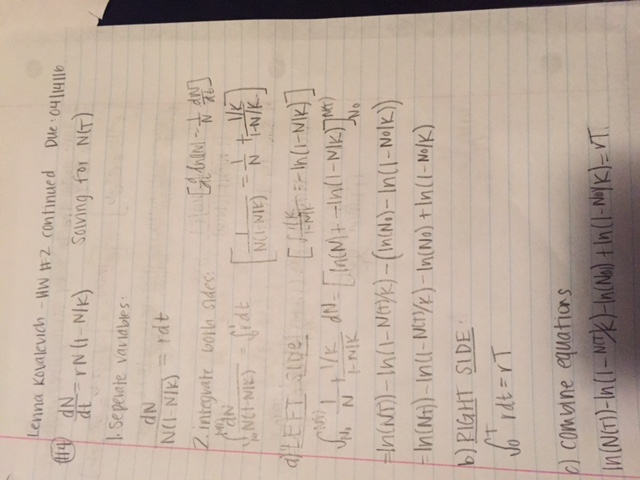 Lenna Kovalevich - HW #2 continued Due: 04/14/16
#4 dN/dt = rN(1-N/K) Solving for N(T)
1. Seperate variables:
dN/N(1-N/K) = rdt
2. integrate both sides: [d/dt ln(N) = 1/N dN/dt]
∫ dN/N(1-N/K) = ∫ r dt [1/N(1-N/K) = 1/N + 1/K/1-N/K]
a) LEFT SIDE [∫ 1/K/1-N/K = -ln(1-N/K)]
∫N₀^N(T) 1/N + 1/K/1-N/K dN = [ln(N) + -ln(1-N/K)]N₀^N(T)
= ln(N(T)) - ln(1-N(T)/K) - (ln(N₀) - ln(1-N₀/K))
= ln(N(T)) - ln(1-N(T)/K) - ln(N₀) + ln(1-N₀/K)
b) RIGHT SIDE:
∫0^T rdt = rT
c) combine equations
ln(N(T)) - ln(1-N(T)/K) - ln(N₀) + ln(1-N₀/K) = rT